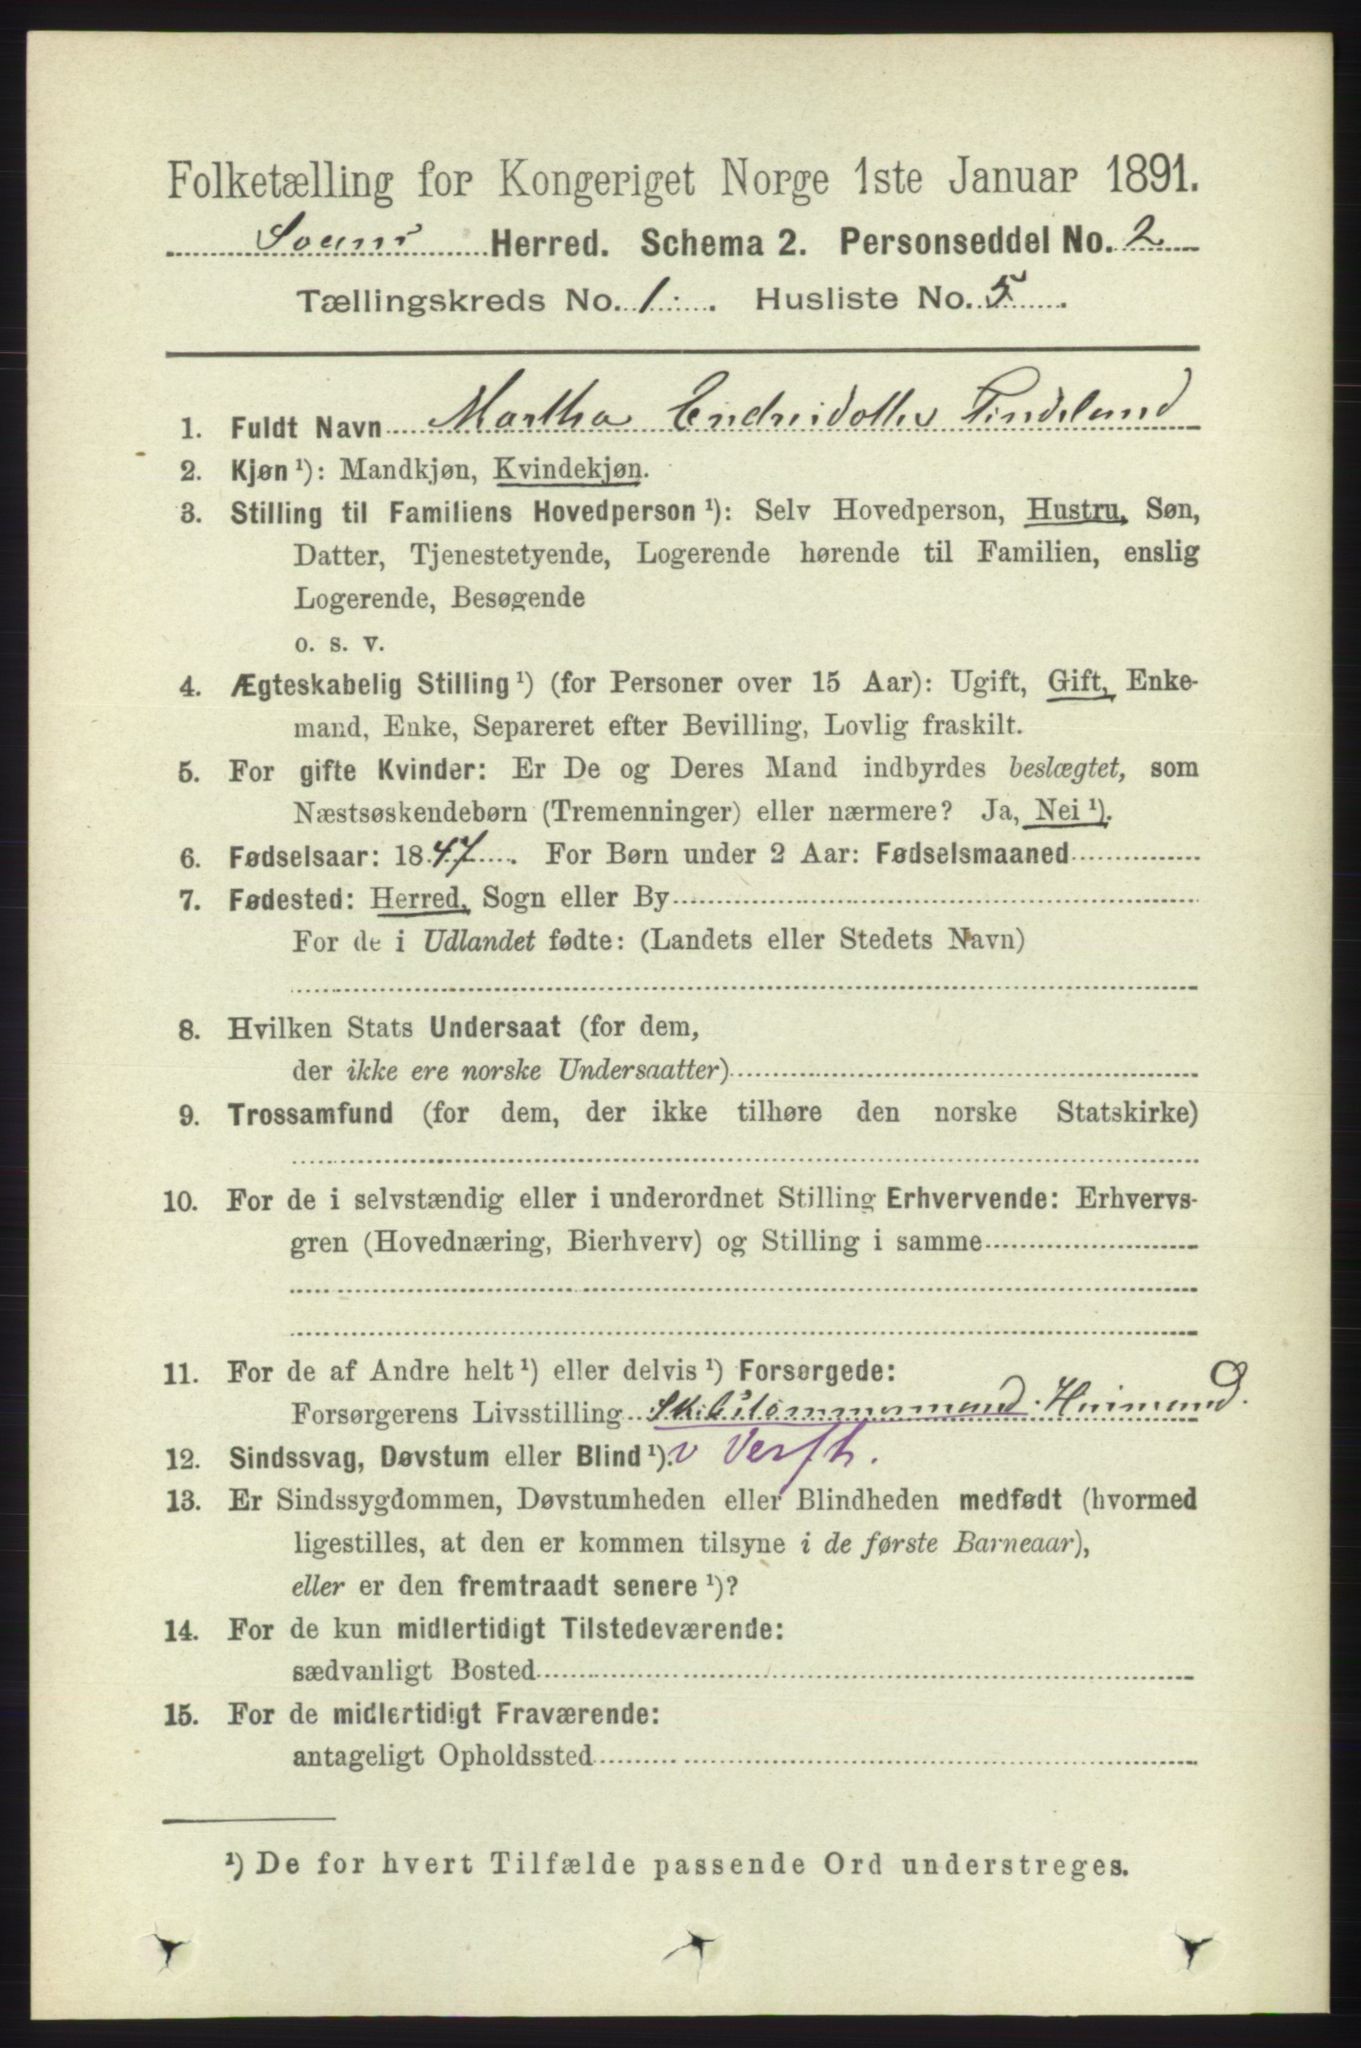 Folketælling for Kongeriget Norge 1ste Januar 1891.
Herred. Schema 2. Personseddel No. 2
Tællingskreds No. 1. Husliste No. 5.
1. Fuldt Navn Martha Endresdotter Tindeland
2. Kjøn ¹): Mandkjøn, Kvindekjøn.
3. Stilling til Familiens Hovedperson ¹): Selv Hovedperson, Hustru, Søn,
Datter, Tjenestetyende, Logerende hørende til Familien, enslig
Logerende, Besøgende
o. s. v.
4. Ægteskabelig Stilling ¹) (for Personer over 15 Aar): Ugift, Gift, Enke-
mand, Enke, Separeret efter Bevilling, Lovlig fraskilt.
5. For gifte Kvinder: Er De og Deres Mand indbyrdes beslægtet, som
Næstsøskendebørn (Tremenninger) eller nærmere? Ja, Nei ¹).
6. Fødselsaar: 1847. For Børn under 2 Aar: Fødselsmaaned
7. Fødested: Herred, Sogn eller By
For de i Udlandet fødte: (Landets eller Stedets Navn)
8. Hvilken Stats Undersaat (for dem,
der ikke ere norske Undersaatter)
9. Trossamfund (for dem, der ikke tilhøre den norske Statskirke)
10. For de i selvstændig eller i underordnet Stilling Erhvervende: Erhvervs-
gren (Hovednæring, Bierhverv) og Stilling i samme
11. For de af Andre helt ¹) eller delvis ¹) Forsørgede:
Forsørgerens Livsstilling Skibstømmermand. Huimand.
12. Sindssvag, Døvstum eller Blind ¹). v Verft.
13. Er Sindssygdommen, Døvstumheden eller Blindheden medfødt (hvormed
ligestilles, at den er kommen tilsyne i de første Barneaar),
eller er den fremtraadt senere ¹)?
14. For de kun midlertidigt Tilstedeværende:
sædvanligt Bosted
15. For de midlertidigt Fraværende:
antageligt Opholdssted
¹) De for hvert Tilfælde passende Ord understreges.